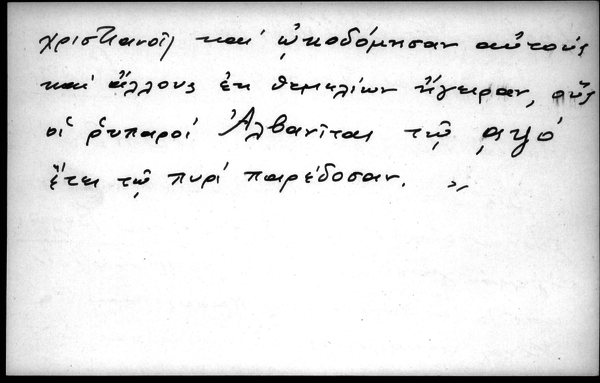 χριστιανοὶ καὶ ᾠκοδόμησαν αὐτούς
καὶ ἄλλους ἐκ θεμελίων ἤγειραν, οὓς
οἱ ῥυπαροὶ Ἀλβανῖται τῷ ͵αψό
ἔτει τῷ πυρί παρέδοσαν. »